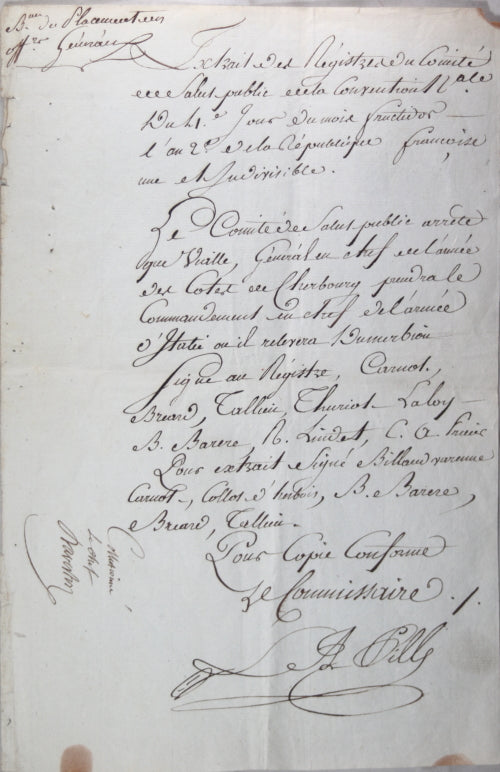 Bau du Placement des
off.rs Généraux
Extrait des Registres du Comité
de Salut public de la Convention N.ale
Du 4.e Jour du mois fructidor
l'an 2.e de la République françoise
une et Indivisible.
Le Comité de Salut public arrête
que Vialle, Général en chef de l'armée
des Cotes de Cherbourg prendra le
Commandement en chef de l'armée
d'Italie ou il relevera Dumerbion
Signé au Régistre, Carnot,
Breard, Tallien, Thuriot Laloy
B. Barere, R. Lindet, C. A. Prieur
Pour extrait Signé Billaud varenne
Carnot, Collot d'herbois, B. Barere,
Breard, Tallien.
Pour Copie Conforme
Le Commissaire ./.
LA Pille